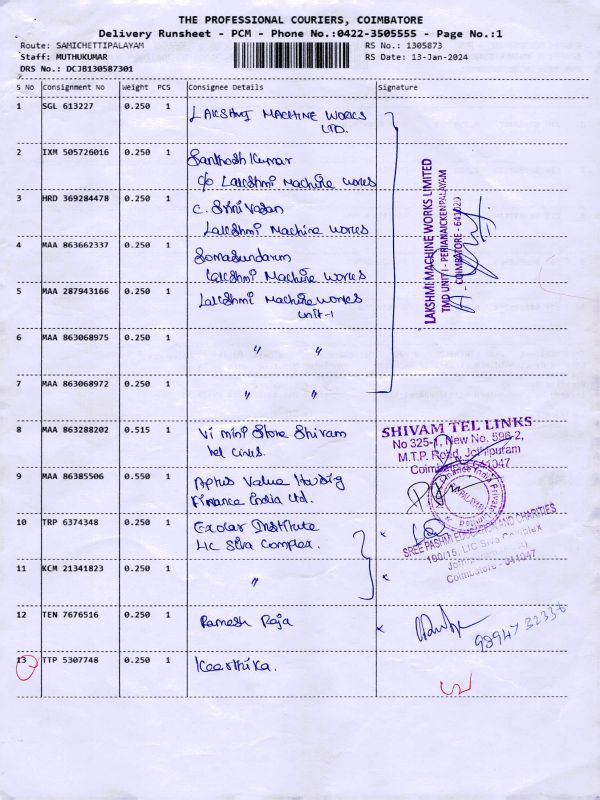 THE PROFESSIONAL COURIERS, COIMBATORE
Delivery Runsheet - PCM - Phone No.:0422-3505555 - Page No.:1
Route: SAMICHETTIPALAYAM
RS No.: 1305873
Staff: MUTHUKUMAR
RS Date: 13-Jan-2024
DRS No.: DCJB130587301
S No Consignment No Weight PCS Consignee Details Signature
1 SGL 613227 0.250 1 LAKSHMI MACHINE WORKS
LTD.
2 IXM 505726016 0.250 1 Santhosh Kumar
c/o Lakshmi Machine Works
3 HRD 369284478 0.250 1 C. Srinivasan
Lakshmi Machine Works
4 MAA 863662337 0.250 1 Somasundaram
Lakshmi Machine Works
5 MAA 287943166 0.250 1 Lakshmi Machine Works
Unit-1
LAKSHMI MACHINE WORKS LIMITED
TMD UNIT I - PERIANAICKENPALAYAM
COIMBATORE - 641020
6 MAA 863068975 0.250 1 〃 〃
7 MAA 863068972 0.250 1 〃 〃
8 MAA 863288202 0.515 1 Vi mini Store Shivam
tel
SHIVAM TEL LINKS
No 325-1, New No. 596-2,
M.T.P. Road, Jothipuram
Coimbatore 641047
9 MAA 86385506 0.550 1 Aptus Value Housig
Finance India Ltd.
10 TRP 6374348 0.250 1 Institute
LIC Siva Complex.
SREE PASHMI AND CHARITIES
190/15, LIC Siva Complex
Coimbatore - 641047
11 KCM 21341823 0.250 1 〃
12 TEN 7676516 0.250 1 Ramesh Raja
13 TTP 5307748 0.250 1 Keerthika.